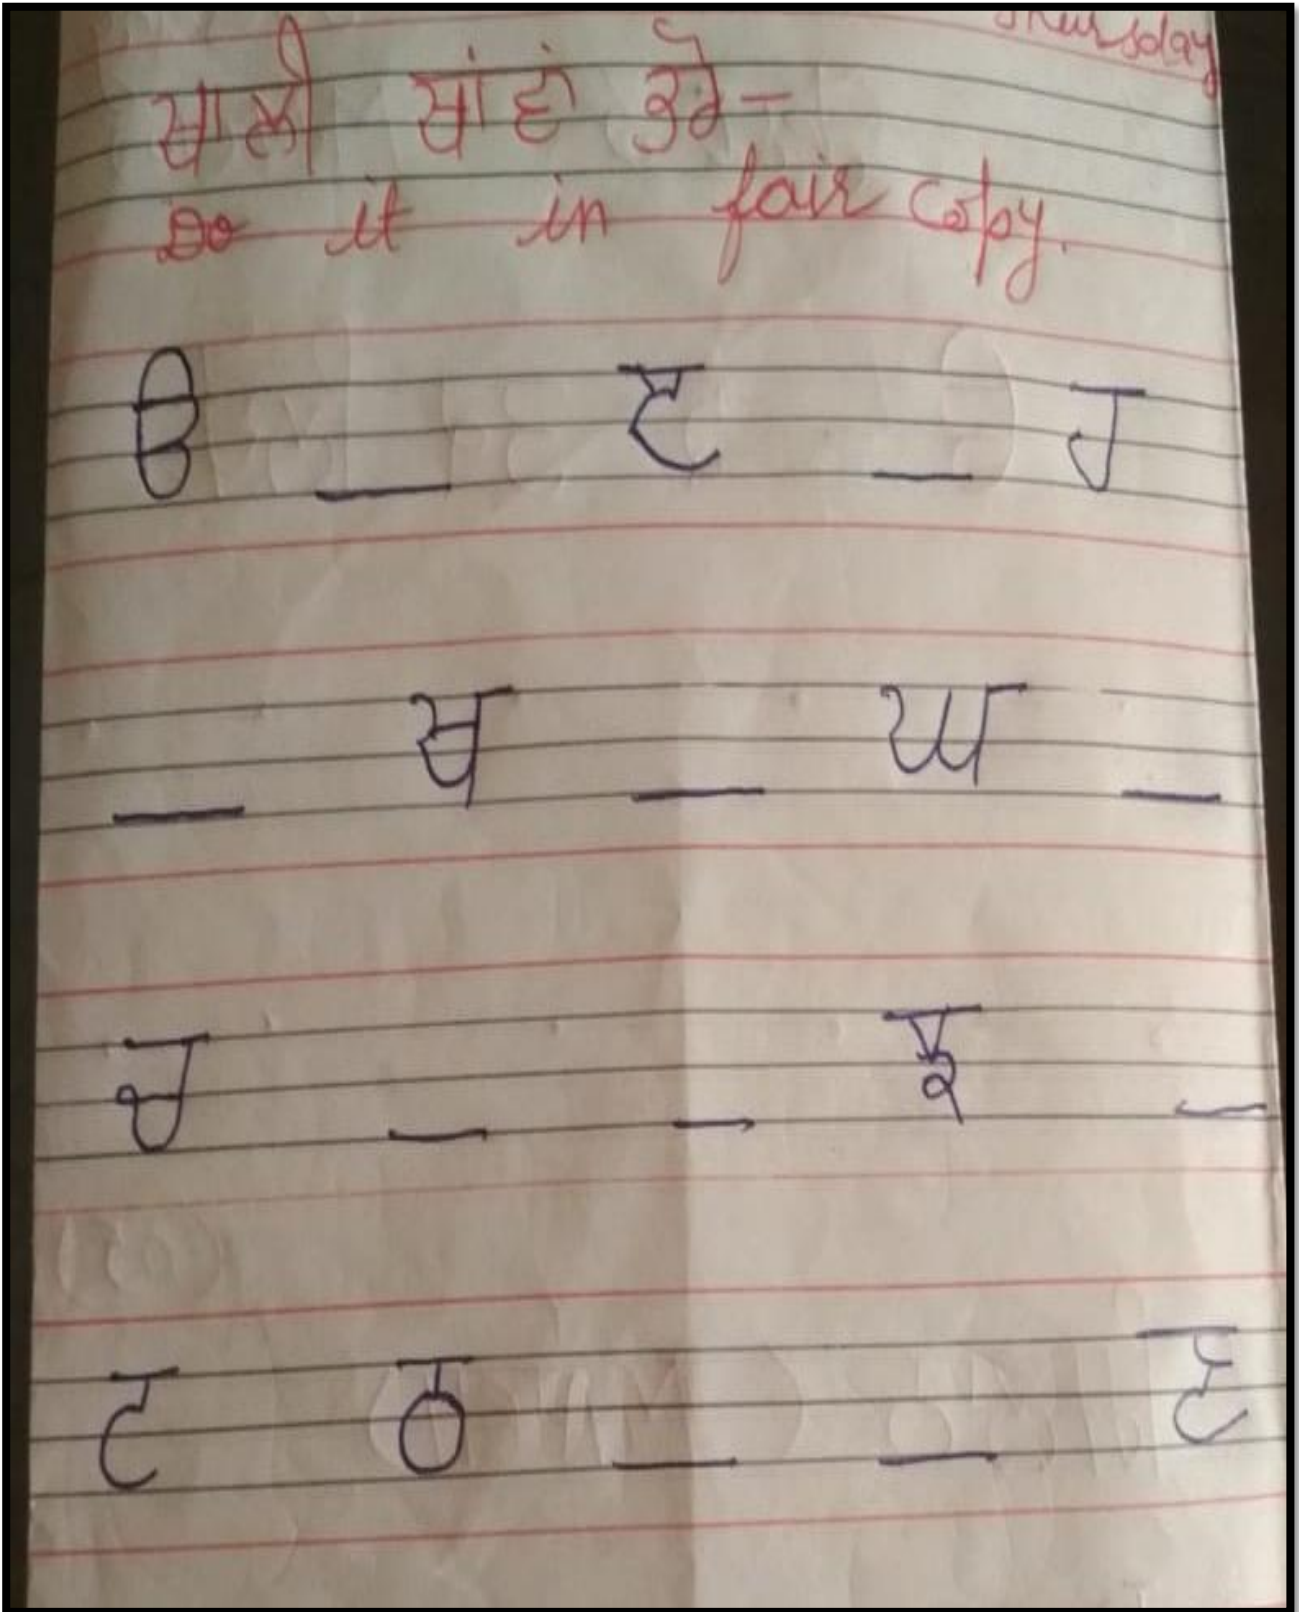 Thursday
ਖਾਲੀ ਥਾਂਵਾਂ ਭਰੋ-
Do it in fair copy.
ੳ __ ੲ __ ਹ
__ ਖ __ ਘ __
ਚ __ __ ਝ __
ਟ ਠ __ __ ਣ